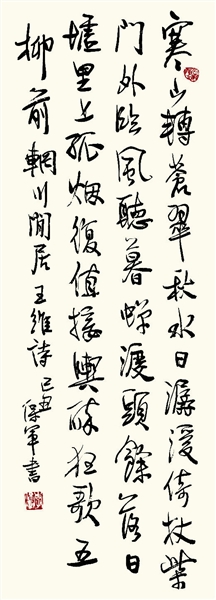 寒山轉蒼翠秋水日潺湲倚杖柴
門外臨風聽暮蟬渡頭餘落日
墟里上孤烟復值接輿醉狂歌五
柳前 輞川閒居王維詩 己丑保軍書